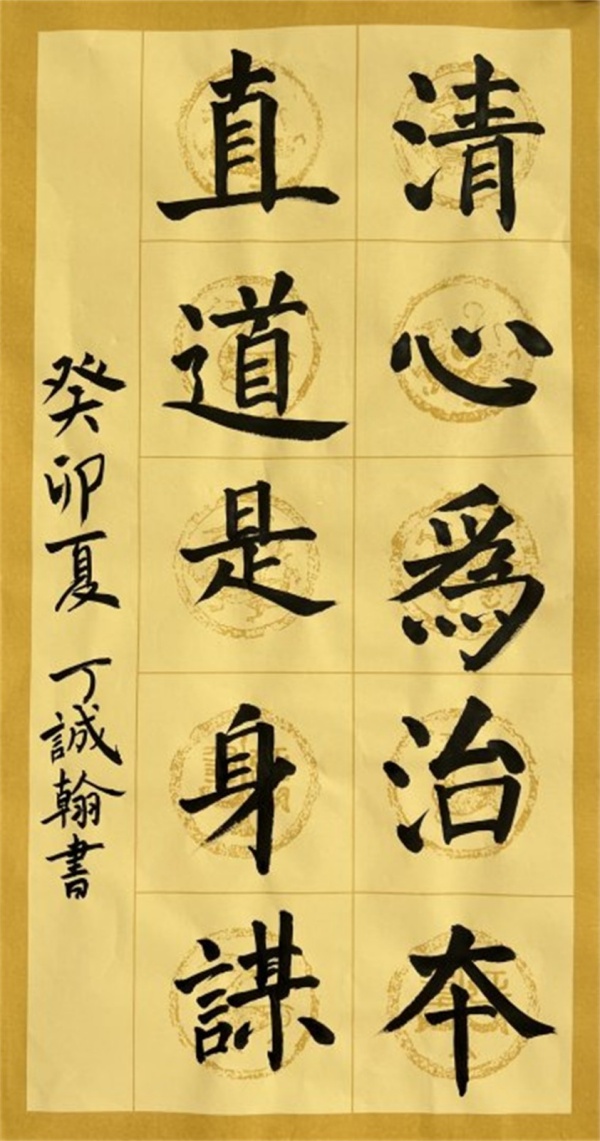 清心爲治本
直道是身謀
癸卯夏 丁誠翰書